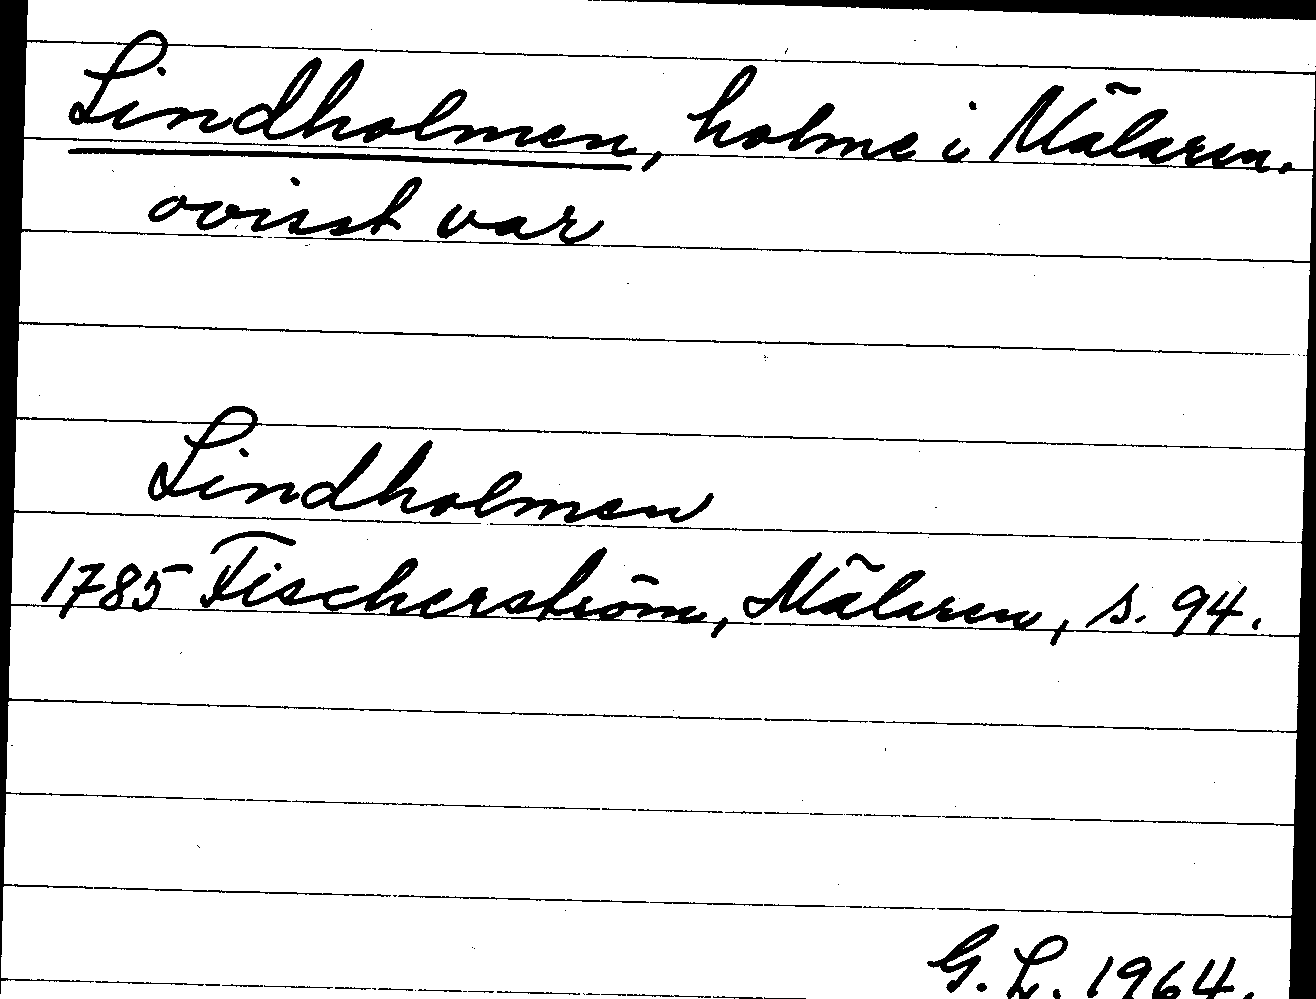 Lindholmen, holme i Mälaren.
ovisst var
Lindholmen
1785 Fischerström, Mälaren, s. 94.
G. L. 1964.